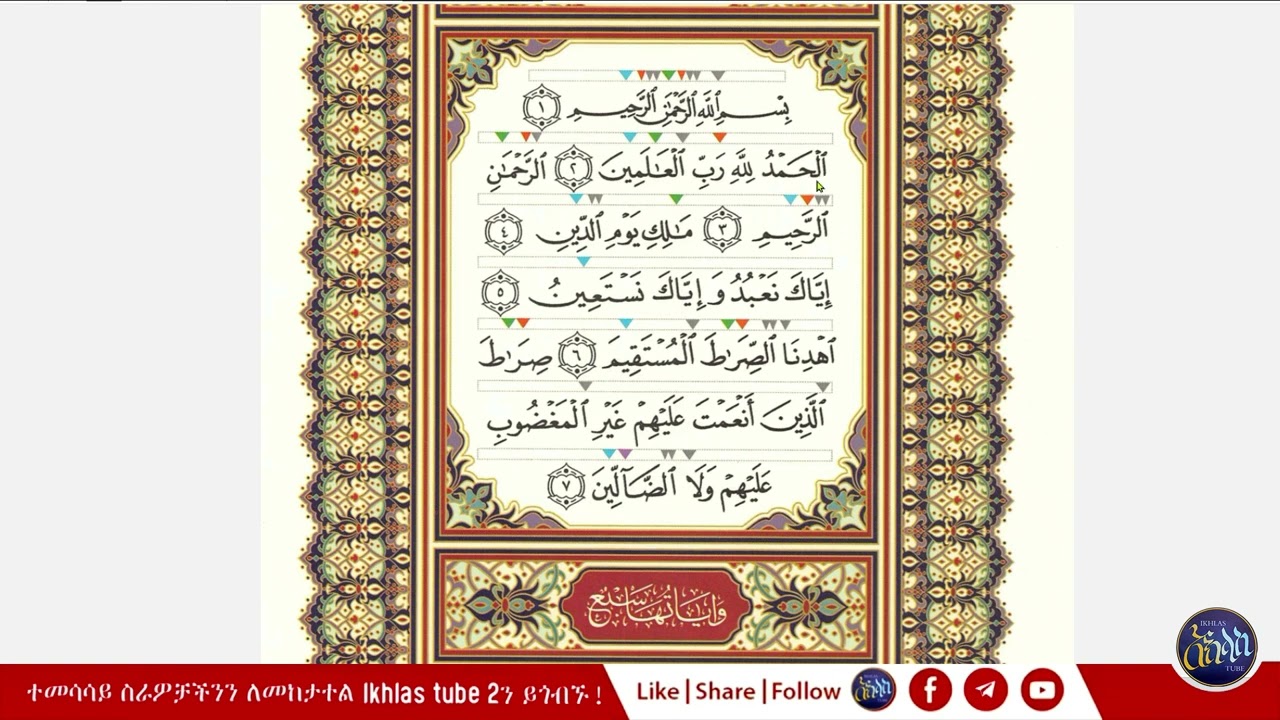 بِسْمِ ٱللَّهِ ٱلرَّحْمَٰنِ ٱلرَّحِيمِ ١
ٱلْحَمْدُ لِلَّهِ رَبِّ ٱلْعَٰلَمِينَ ٢ ٱلرَّحْمَٰنِ
ٱلرَّحِيمِ ٣ مَٰلِكِ يَوْمِ ٱلدِّينِ ٤
إِيَّاكَ نَعْبُدُ وَإِيَّاكَ نَسْتَعِينُ ٥
ٱهْدِنَا ٱلصِّرَٰطَ ٱلْمُسْتَقِيمَ ٦ صِرَٰطَ
ٱلَّذِينَ أَنْعَمْتَ عَلَيْهِمْ غَيْرِ ٱلْمَغْضُوبِ
عَلَيْهِمْ وَلَا ٱلضَّآلِّينَ ٧
وَآيَاتُهَا سَبْعٌ
IKHLAS
ኢኽላስ
TUBE
ተመሳሳይ ስራዎቻችንን ለመከታተል Ikhlas tube 2ን ይጎብኙ !
Like | Share | Follow